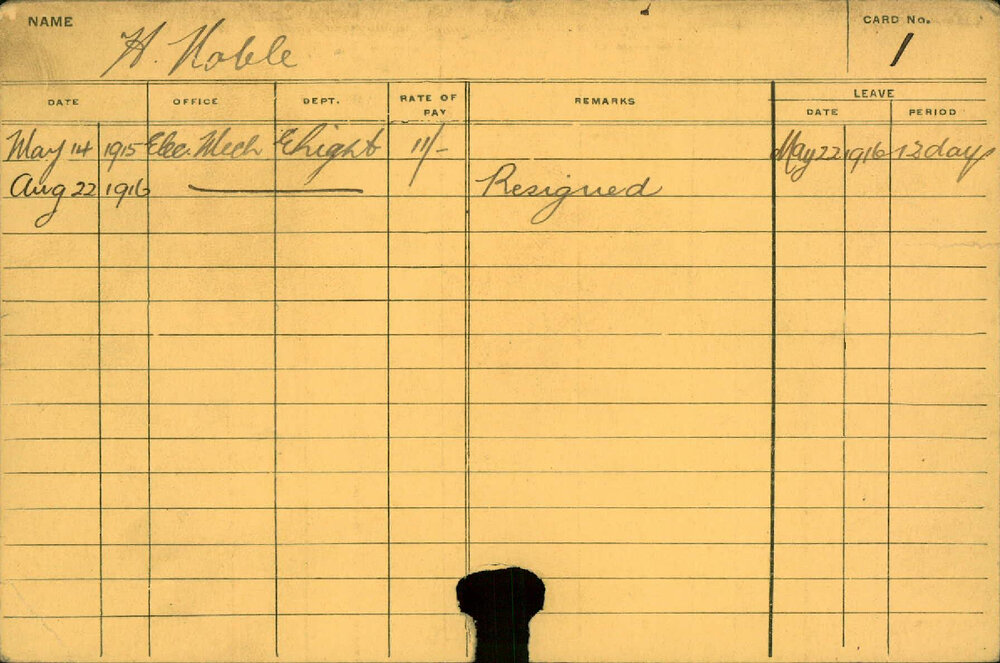 NAME H. Noble CARD No. 1
DATE OFFICE DEPT. RATE OF PAY REMARKS LEAVE DATE PERIOD
May 14 1915 Elec. Mech Elight 11/- May 22 1916 12 days
Aug 22 1916 Resigned